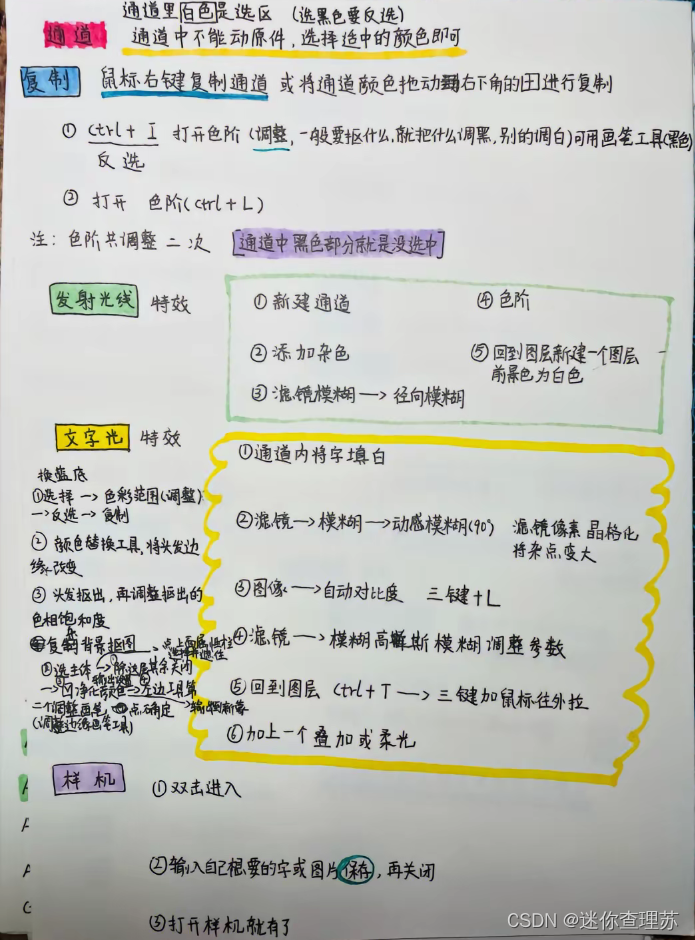 通道里白色是选区 (选黑色要反选)
通道 通道中不能动原件,选择适中的颜色即可
复制 鼠标右键复制通道 或将通道颜色拖动到右下角的田进行复制
① ctrl + I 打开色阶 (调整,一般要抠什么,就把什么调黑,别的调白)可用画笔工具(黑色)
反选
② 打开 色阶(ctrl + L)
注: 色阶共调整二次 通道中黑色部分就是没选中
发射光线 特效
①新建通道 ④色阶
②添加杂色 ⑤回到图层新建一个图层
前景色为白色
③滤镜模糊→径向模糊
文字光 特效
①通道内将字填白
②滤镜→模糊→动感模糊(90°) 滤镜像素 晶格化
将杂点变大
③图像→自动对比度 三键+L
④滤镜→模糊高斯模糊调整参数
⑤回到图层 ctrl+T → 三键加鼠标往外拉
⑥加上一个叠加或柔光
换蓝底
①选择→色彩范围(调整)
→反选→复制
② 颜色替换工具,将头发边
缘改变
③头发抠出,再调整抠出的
色相饱和度
复制背景抠图
选主体→除这层其余关闭
净化颜色→左边工具第
二个调整画笔, 点确定
(调整边缘画笔工具)
样机
①双击进入
②输入自己想要的字或图片保存,再关闭
③打开样机就有了
CSDN @迷你查理苏